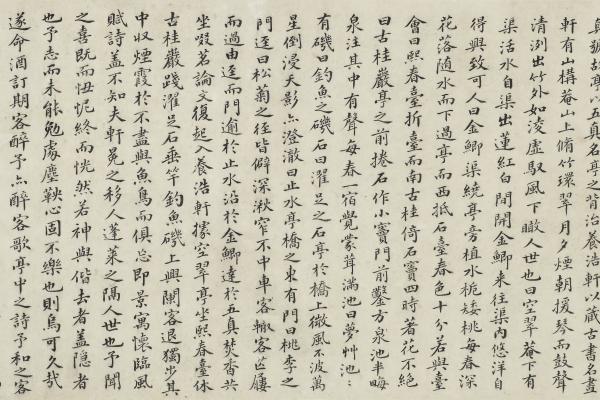 真號故亭以五真名亭之背治養浩軒以藏古書名畫
軒有山構菴山上脩竹環翠月夕煙朝援琴而鼓聲
清洌出竹外如凌虛馭風下瞰人世也曰空翠菴下有
渠活水自渠出蓮紅白間開金鯽来往渠内悠洋自
得興致可人曰金鯽渠繞亭旁植水梔矮桃每春深
花落随水而下過亭而西抵石臺春色十分若與臺
會曰熙春臺折臺而南古桂倚石竇四時著花不絶
曰古桂巖亭之前捲石作小竇門前鑿方泉池半畮
泉注其中有聲每春一宿覺蒙茸滿池曰夢艸池池
有磯曰釣魚之磯石曰濯足之石亭於橋上微風不波萬
星倒浸天影亦澄澈曰止水亭橋之東有門曰桃李之
門逕曰松菊之径皆僻深湫窄不中車客輙客芒屨
而過由逕而門逾於止水沿於金鯽達於五真焚香共
坐啜茗論文復起入養浩軒據空翠亭坐熙春臺休
古桂巖踐濯足石垂竿釣魚磯上興闌客退獨步其
中収煙霞於不盡與魚鳥而俱忘即景寓懐臨風
賦詩盖不知夫軒冕之移人蓬萊之隔人世也予聞
之喜既而忸怩終而恍然若神與偕去者盖隠者
也予志而未能勉處塵鞅心固不樂也則烏可久哉
遂命酒訂期客醉予亦醉客歌亭中之詩予和之客